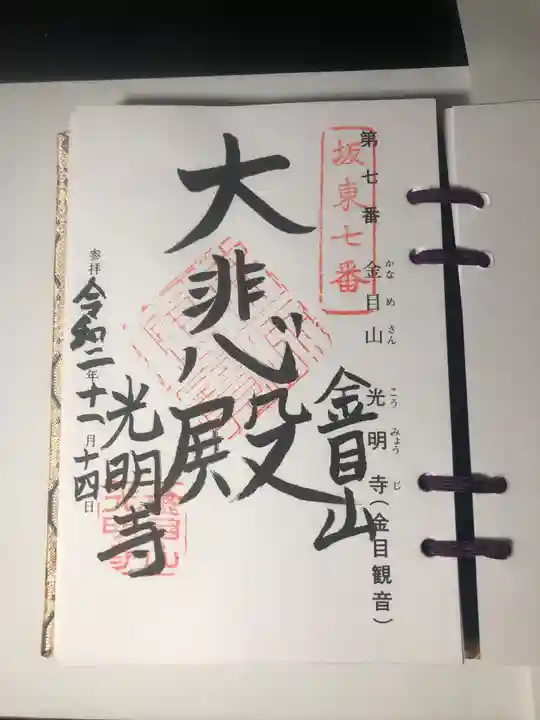 坂東七番
第七番 金目山 光明寺（金目観音）
かなめさん こうみょうじ
金目山
大悲殿
光明寺
参拝 令和二年十一月十四日